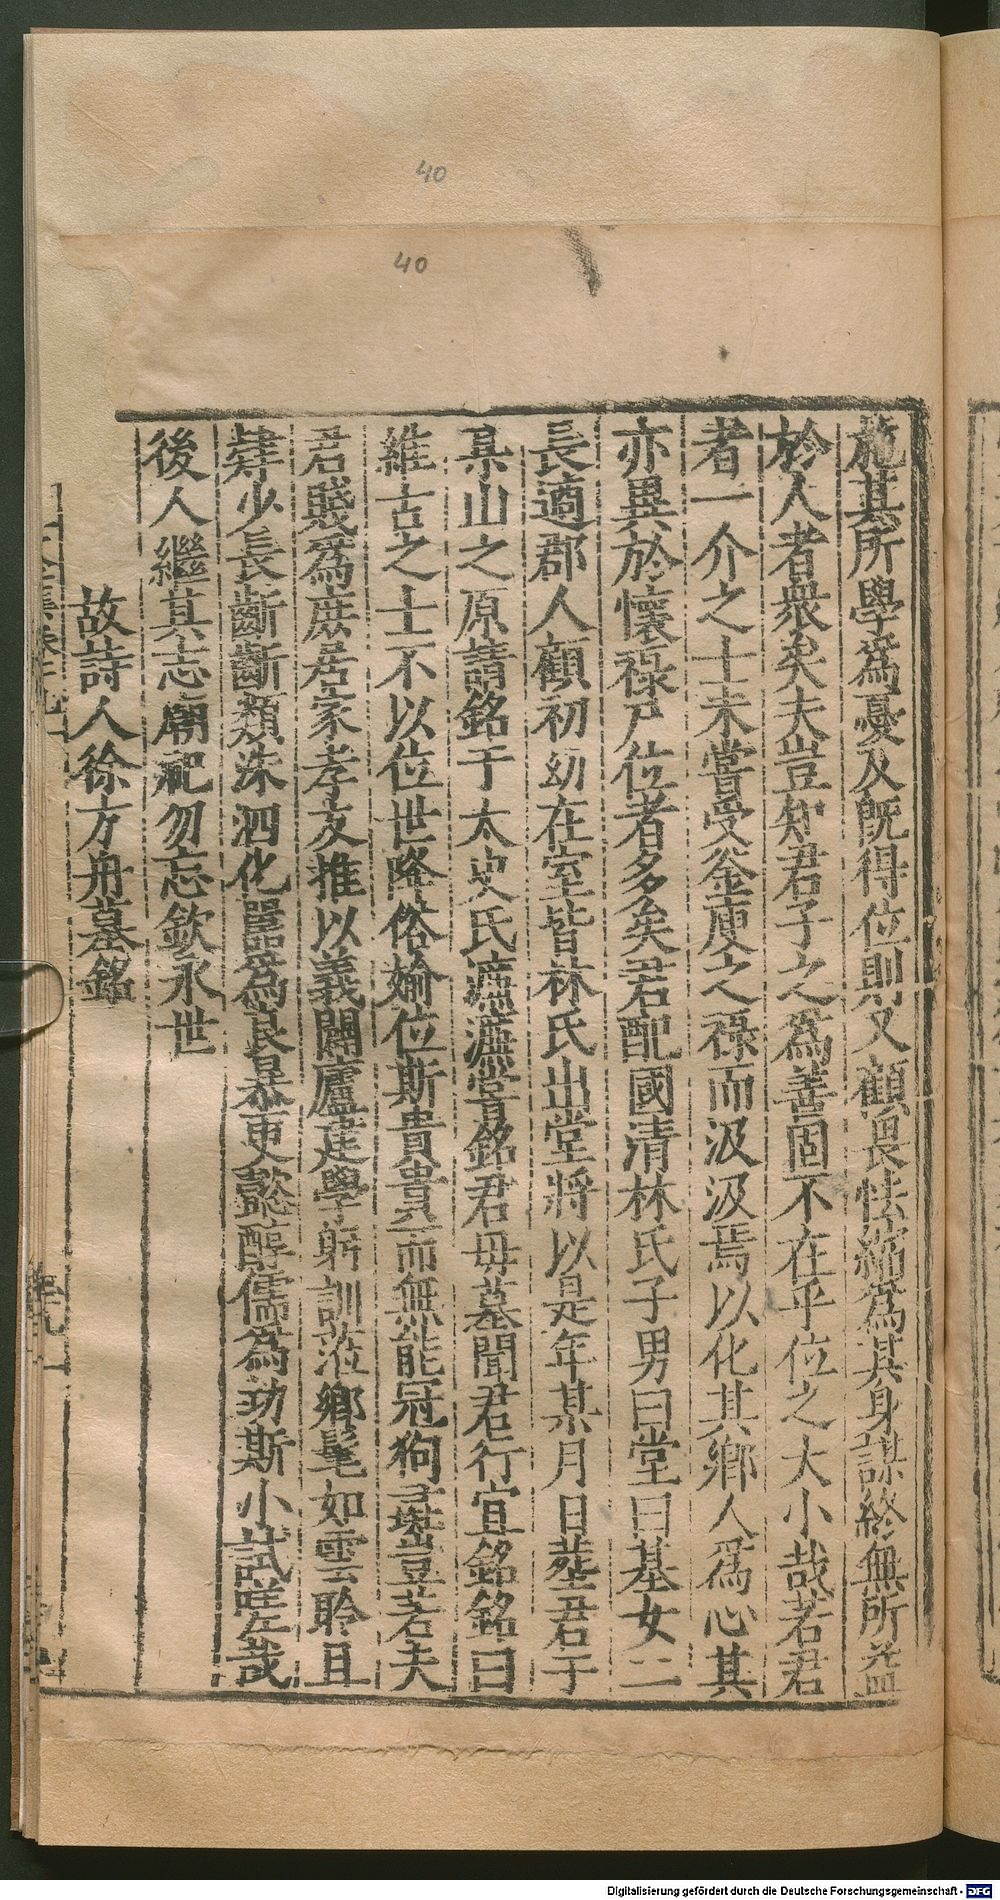 40
40
施其所學爲憂及既得位則又顧畏怯縮爲其身謀終無所益
於人者衆矣夫豈知君子之爲善固不在乎位之大小哉若君
者一介之士未嘗受釜庾之祿而汲汲焉以化其鄉人爲心其
亦異於懷祿尸位者多矣君配國清林氏子男曰堂曰基女二
長適郡人顧初幼在室皆林氏出堂將以是年某月日塟君于
某山之原請銘于太史氏濂濂嘗銘君母墓聞君行宜銘銘曰
維古之士不以位世降俗媮位斯貴貴而無能冠狗彘豈若夫
君賤爲庶居家孝友推以義闢廬建學躬訓涖鄉髦如雲聆且
肄少長齗齗類洙泗化嚚爲良暴更懿醇儒爲功斯小試嗟哉
後人繼其志廟祀勿忘欽永世
故詩人徐方舟墓銘
Digitalisierung gefördert durch die Deutsche Forschungsgemeinschaft - DFG